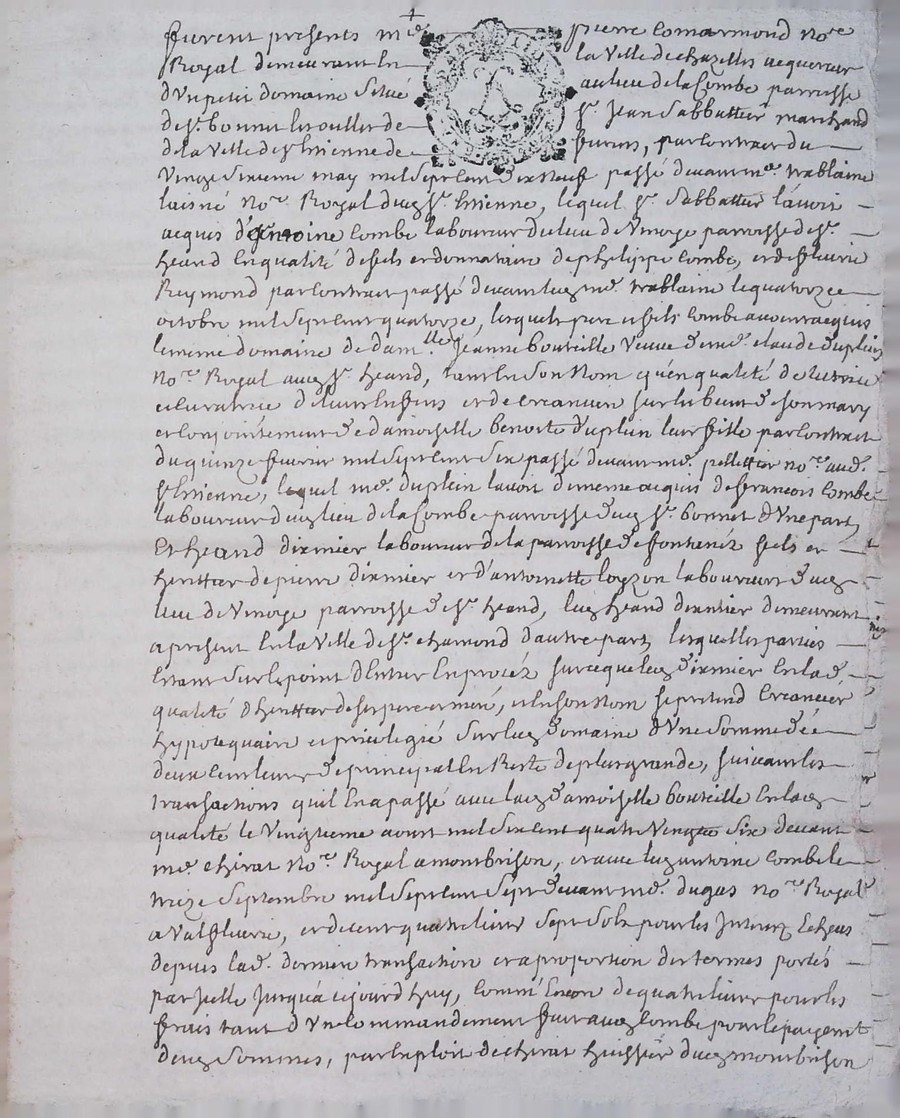 furent presents me. pierre Comarmond nore
Royal demeurant En la Ville de chazelles acquereur
d'Un petit domaine Situé au lieu de la Combe parroisse
de st. bonnet les oulles de sr. Jean Sabbattier marchand
de la Ville de st Etienne de furens, par Contrat du
Vingt Sixieme may mil Sept Cent dix neuf passé devant me. trablaine
laisné nore. Royal dudt st. Etienne, lequel sr. Sabbattier l'avoit
acquis d'Antoine Combe laboureur du lieu de Vinoge parroisse de st.
heand En qualité de fils et donnataire de philippe Combe, et de fleurie
Reymond par Contrat passé devant ledt me. trablaine le quatorze
octobre mil Sept Cent quatorze, lesquels pere et fils Combe avoient acquis
le meme domaine de damlle. Jeanne bouteille Veuve de me. claude duplein
nore. Royal audt st. heand, tant En Son Nom qu'en qualité de tutrice
et Curatrice de leurs Enfans et de Creanciere Sur les biens de Son mary
et Conjointement de damoiselle benoite duplein leur fille par Contrat
du quinze fevrier mil Sept Cent Six passé devant me. pellettier nore. aud.
st Etienne, lequel me. duplein l'avoit de meme acquis de francois Combe
laboureur dudt lieu de la Combe parroisse dudt st. bonnet d'Une part,
Et heand dirmier laboureur de la parroisse de fontenés fils et
heritier de pierre dirmier et d'antoinette loyzon laboureurs dudt
lieu de Vinoge parroisse de st. heand, ledt heand dirmier demeurant
a present En la Ville de st. chamond d'autre part, lesquelles parties
Etant Sur le point d'Entrer En procés Sur ce que ledt dirmier En lad.
qualité d'heritier de Ses pere et mere, et En Son Nom Se pretend Creancier
hypotequaire et privilegié Sur ledt domaine d'Une Somme de
deux Cent livres de principal En Reste de plus grande, Suivant les
transactions quil En a passé avec ladt damoiselle bouteille En ladt
qualité le Vingtieme aoust mil Six cent quatre Vingts Six devant
me. chirat Nore. Royal a montbrison, et avec ledt antoine Combe le
treize Septembre mil Sept Cent Sept devant me. dugas nore. Royal
a Valfleurie, et de cent quatre livres Sept Sols pour les Interets Echeus
depuis lad. derniere transaction et a proportion des termes portés
par Jcelle Jusqu'a cejourd'huy, Comm' Encore de quatre livres pour les
frais tant d'Un Commandement fait audt Combe pour le paiement
desdt Sommes, par Exploit de chirat huissier dudt montbrison